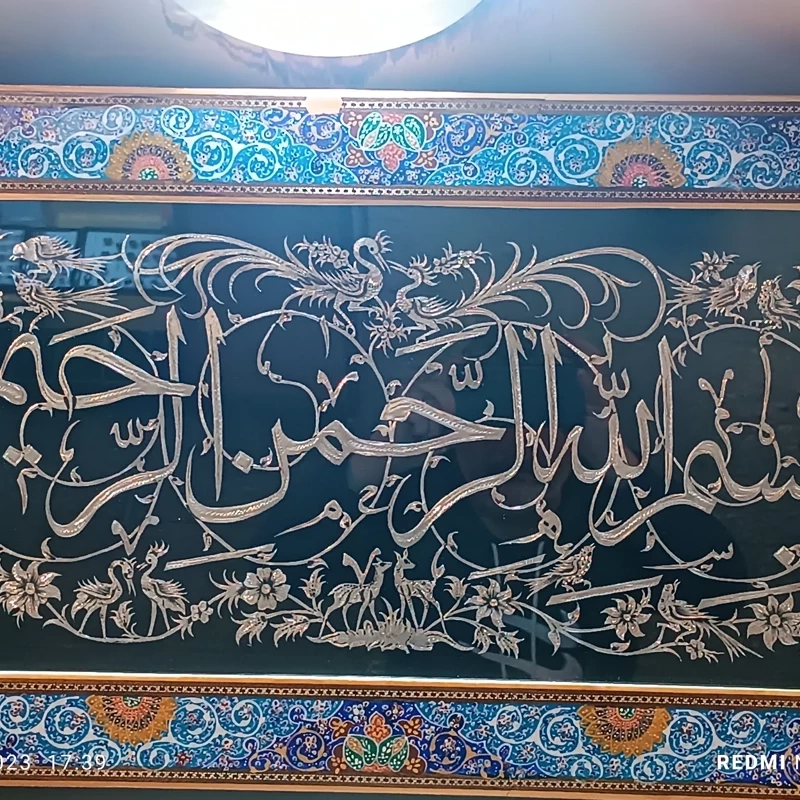 بسم الله الرحمن الرحیم
2023 17:39
REDMI N